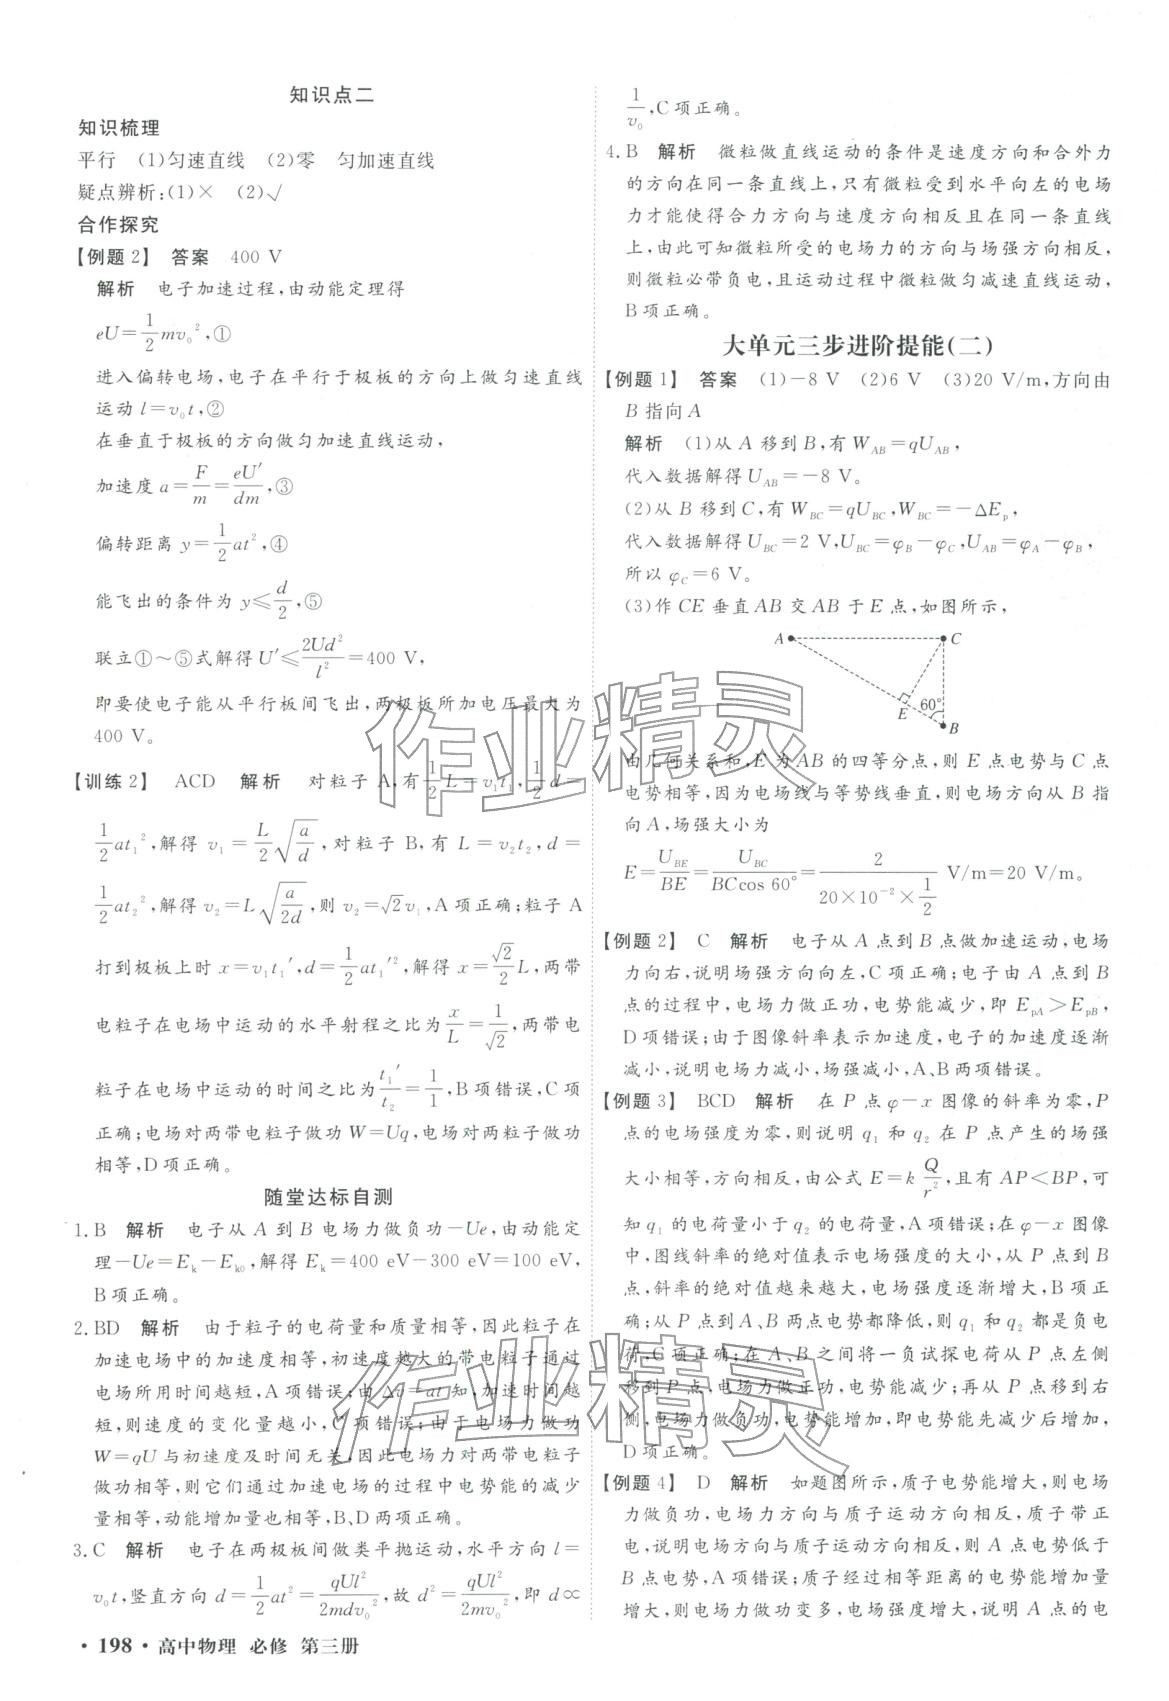 知识点二
知识梳理
平行 (1)匀速直线 (2)零 匀加速直线
疑点辨析:(1)× (2)√
合作探究
【例题2】 答案 400 V
解析 电子加速过程,由动能定理得
eU=\frac{1}{2}mv₀²,①
进入偏转电场,电子在平行于极板的方向上做匀速直线
运动 l=v₀t,②
在垂直于极板的方向做匀加速直线运动,
加速度 a=\frac{F}{m}=\frac{eU′}{dm},③
偏转距离 y=\frac{1}{2}at²,④
能飞出的条件为 y≤\frac{d}{2},⑤
联立①~⑤式解得 U′≤\frac{2Ud²}{l²}=400 V,
即要使电子能从平行板间飞出,两极板所加电压最大为
400 V。
【训练2】 ACD 解析 对粒子 A,有\frac{1}{2}L=v₁t₁,\frac{1}{2}d=
\frac{1}{2}at₁²,解得 v₁=\frac{L}{2}\sqrt{\frac{a}{d}},对粒子 B,有 L=v₂t₂,d=
\frac{1}{2}at₂²,解得 v₂=L\sqrt{\frac{a}{2d}},则 v₂=√2v₁,A 项正确;粒子 A
打到极板上时 x=v₁t₁′,d=\frac{1}{2}at₁′²,解得 x=\frac{√2}{2}L,两带
电粒子在电场中运动的水平射程之比为\frac{x}{L}=\frac{1}{√2},两带电
粒子在电场中运动的时间之比为\frac{t₁′}{t₂}=\frac{1}{1},B 项错误,C 项
正确;电场对两带电粒子做功 W=Uq,电场对两粒子做功
相等,D 项正确。
随堂达标自测
1. B 解析 电子从 A 到 B 电场力做负功−Ue,由动能定
理−Ue=Eₖ−Eₖ₀,解得 Eₖ=400 eV−300 eV=100 eV,
B 项正确。
2. BD 解析 由于粒子的电荷量和质量相等,因此粒子在
加速电场中的加速度相等,初速度越大的带电粒子通过
电场所用时间越短,A 项错误;由 Δv=at 知,加速时间越
短,则速度的变化量越小,C 项错误;由于电场力做功
W=qU 与初速度及时间无关,因此电场力对两带电粒子
做功相等,则它们通过加速电场的过程中电势能的减少
量相等,动能增加量也相等,B、D 两项正确。
3. C 解析 电子在两极板间做类平抛运动,水平方向 l=
v₀t,竖直方向 d=\frac{1}{2}at²=\frac{qUl²}{2mdv₀²},故 d²=\frac{qUl²}{2mv₀²},即 d∝
· 198 · 高中物理 必修 第三册
\frac{1}{v₀},C 项正确。
4. B 解析 微粒做直线运动的条件是速度方向和合外力
的方向在同一条直线上,只有微粒受到水平向左的电场
力才能使得合力方向与速度方向相反且在同一条直线
上,由此可知微粒所受的电场力的方向与场强方向相反,
则微粒必带负电,且运动过程中微粒做匀减速直线运动,
B 项正确。
大单元三步进阶提能(二)
【例题1】 答案 (1)−8 V (2)6 V (3)20 V/m,方向由
B 指向 A
解析 (1)从 A 移到 B,有 W_{AB}=qU_{AB},
代入数据解得 U_{AB}=−8 V。
(2)从 B 移到 C,有 W_{BC}=qU_{BC},W_{BC}=−ΔEₚ,
代入数据解得 U_{BC}=2 V,U_{BC}=φ_B−φ_C,U_{AB}=φ_A−φ_B,
所以 φ_C=6 V。
(3)作 CE 垂直 AB 交 AB 于 E 点,如图所示,
A C
E 60° B
由几何关系和,E 为 AB 的四等分点,则 E 点电势与 C 点
电势相等,因为电场线与等势线垂直,则电场方向从 B 指
向 A,场强大小为
E=\frac{U_{BE}}{BE}=\frac{U_{BC}}{BCcos 60°}=\frac{2}{20×10⁻²×\frac{1}{2}} V/m=20 V/m。
【例题2】 C 解析 电子从 A 点到 B 点做加速运动,电场
力向右,说明场强方向向左,C 项正确;电子由 A 点到 B
点的过程中,电场力做正功,电势能减少,即 E_{pA}>E_{pB},
D 项错误;由于图像斜率表示加速度,电子的加速度逐渐
减小,说明电场力减小,场强减小,A、B 两项错误。
【例题3】 BCD 解析 在 P 点 φ−x 图像的斜率为零,P
点的电场强度为零,则说明 q₁ 和 q₂ 在 P 点产生的场强
大小相等,方向相反,由公式 E=k\frac{Q}{r²},且有 AP<BP,可
知 q₁ 的电荷量小于 q₂ 的电荷量,A 项错误;在 φ−x 图像
中,图线斜率的绝对值表示电场强度的大小,从 P 点到 B
点,斜率的绝对值越来越大,电场强度逐渐增大,B 项正
确;从 P 点到 A、B 两点电势都降低,则 q₁ 和 q₂ 都是负电
荷,C 项正确;在 A、B 之间将一负试探电荷从 P 点左侧
移到 P 点,电场力做正功,电势能减少;再从 P 点移到右
侧,电场力做负功,电势能增加,即电势能先减少后增加,
D 项正确。
【例题4】 D 解析 如题图所示,质子电势能增大,则电场
力做负功,电场力方向与质子运动方向相反,质子带正
电,说明电场方向与质子运动方向相反,则 A 点电势低于
B 点电势,A 项错误;质子经过相等距离的电势能增加量
增大,说明电场力做功变多,电场强度增大,说明 A 点的电
作业精灵
作业精灵